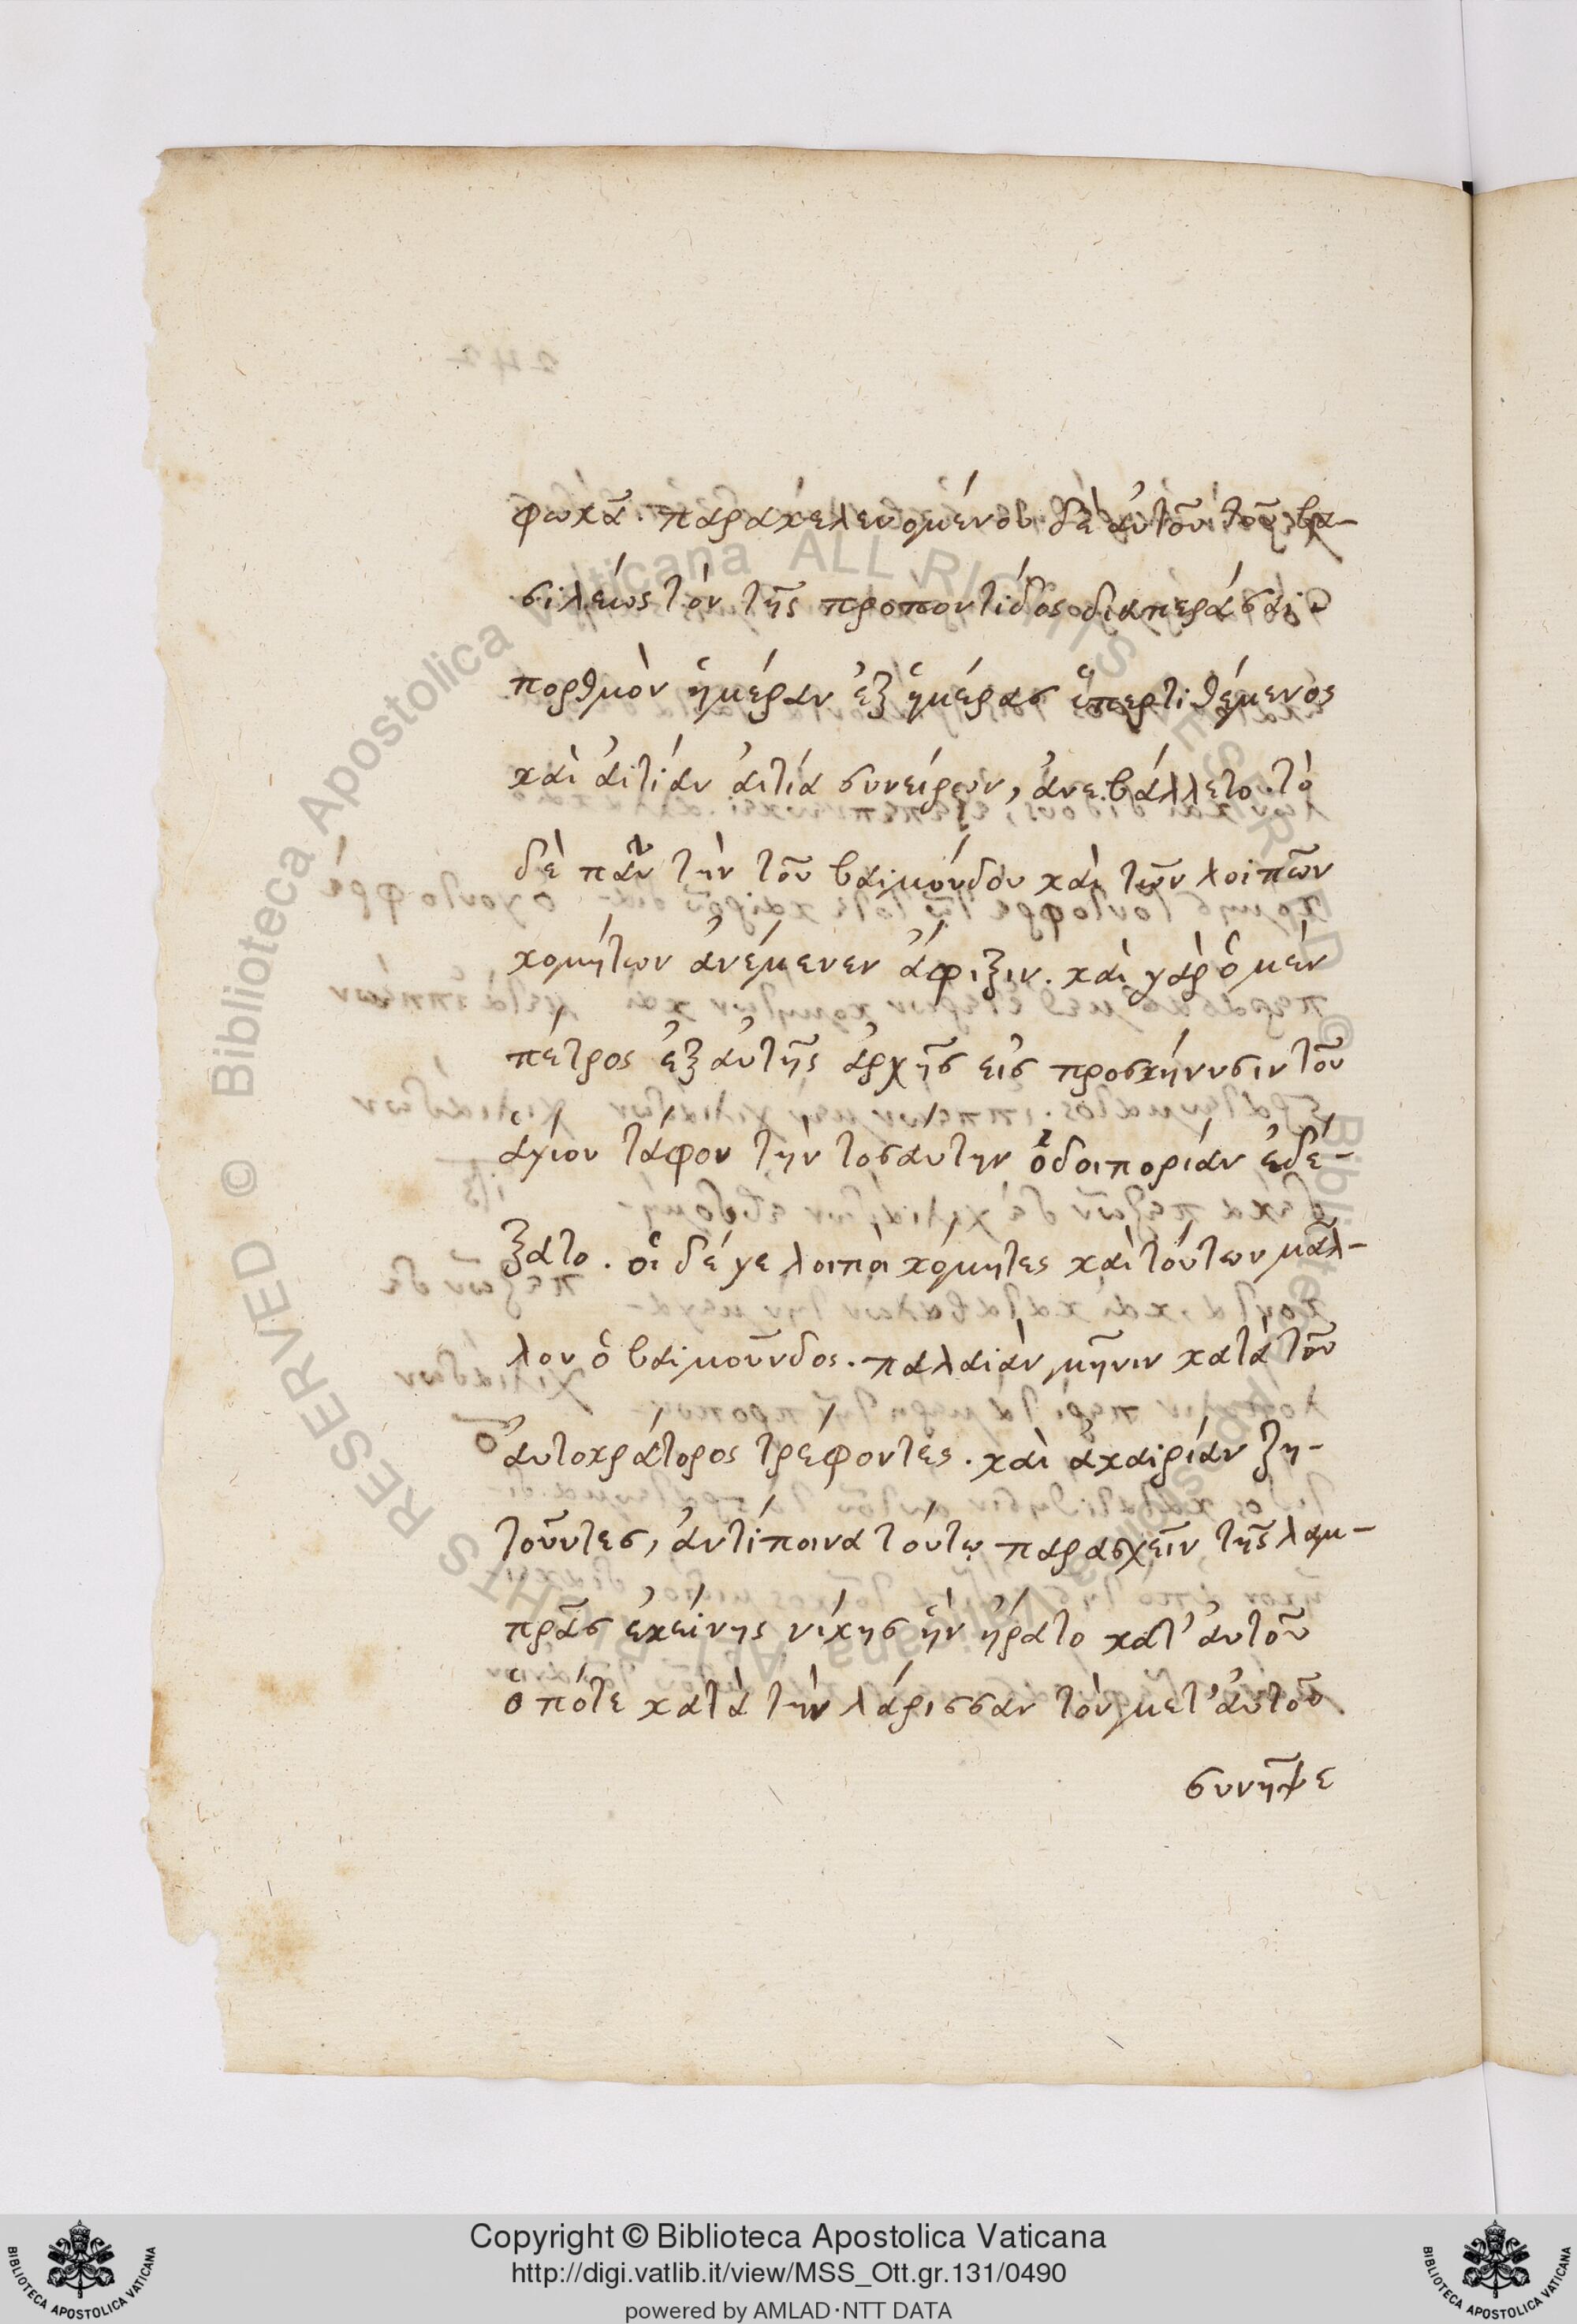 φωκᾶ. παρακελευομένου δὲ αὐτοῦ τοῦ βα-
σιλέως τὸν τῆς προποντίδος διαπερᾶσαι
πορθμὸν ἡμέραν ἐξ ἡμέρας ὑπερτιθέμενος
καὶ αἰτίαν αἰτία συνείρων, ἀνεβάλλετο. τὸ
δὲ πᾶν τὴν τοῦ βαϊμούνδου καὶ τῶν λοιπῶν
κομήτων ἀνέμενεν ἄφιξιν. καὶ γὰρ ὁ μὲν
πέτρος ἐξ αὐτῆς ἀρχῆς εἰς προσκήνυσιν τοῦ
ἁγίου τάφου τὴν τοσαύτην ὁδοιπορίαν ἐδέ-
ξατο. οἱ δέ γε λοιποὶ κόμητες καὶ τούτων μᾶλ-
λον ὁ βαϊμοῦνδος. παλαιὰν μῆνιν κατὰ τοῦ
αὐτοκράτορος τρέφοντες. καὶ ἀκαιρίαν ζη-
τοῦντες, ἀντίποινα τούτῳ παρασχεῖν τῆς λαμ-
πρᾶς ἐκείνης νίκης ἣν ἤρατο κατ' αὐτοῦ
ὁπότε κατὰ τὴν λάρισσαν τὸν μετ' αὐτοῦ
συνῆψε
Copyright © Biblioteca Apostolica Vaticana
http://digi.vatlib.it/view/MSS_Ott.gr.131/0490
powered by AMLAD·NTT DATA
BIBLIOTECA APOSTOLICA VATICANA
BIBLIOTECA APOSTOLICA VATICANA
Biblioteca Apostolica Vaticana ALL RIGHTS RESERVED ©
Biblioteca Apostolica Vaticana ALL RIGHTS RESERVED ©